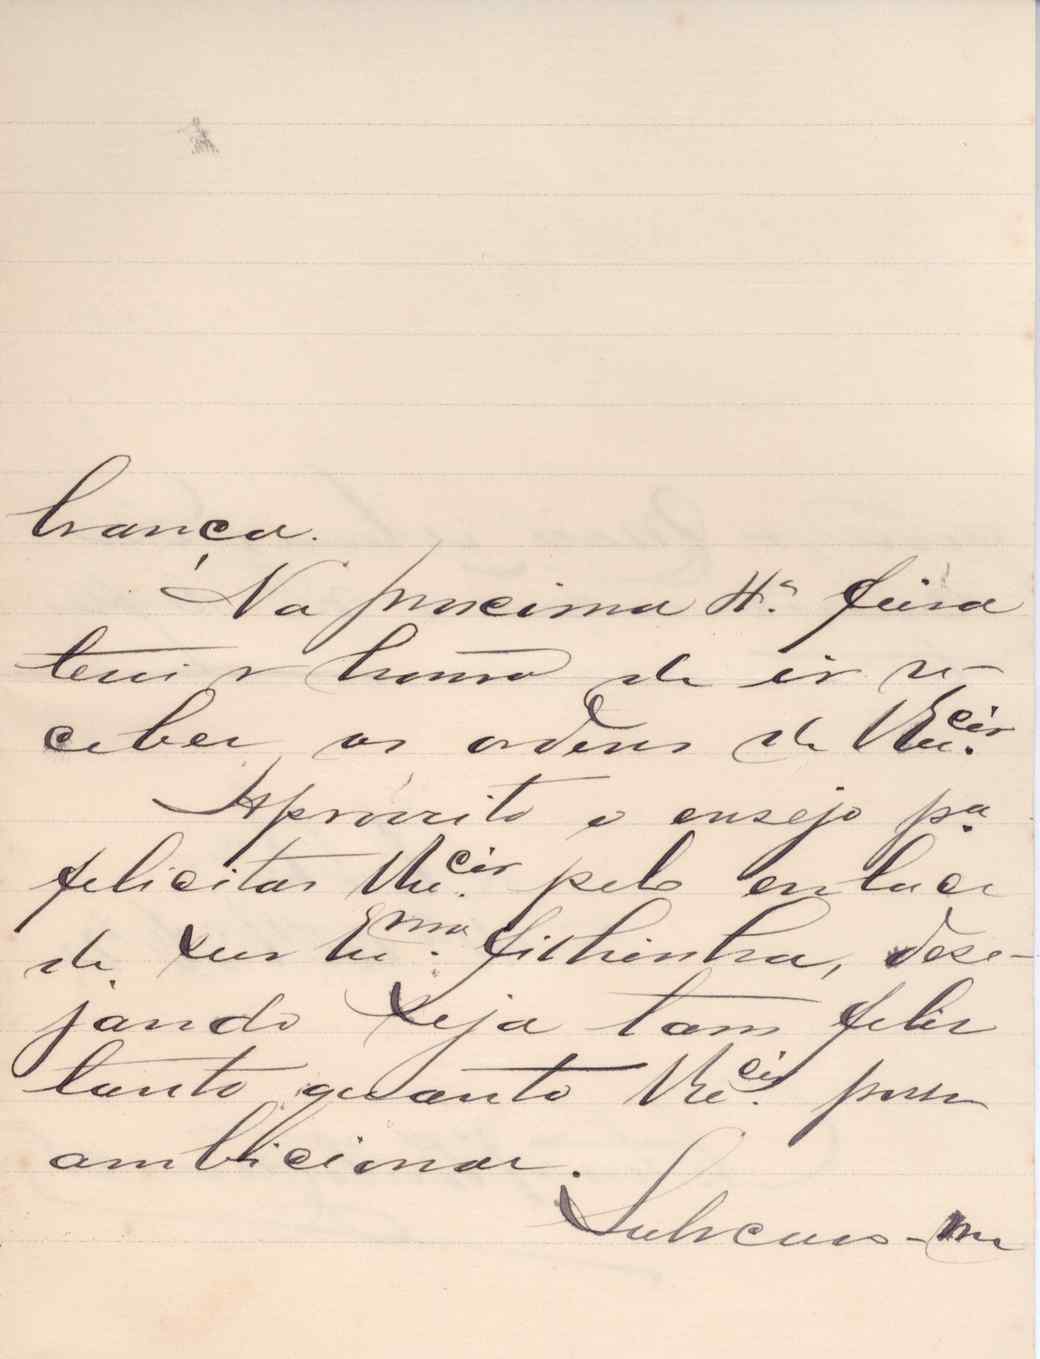 brança.
Na proxima 4.ª feira
terei a honra de ir re-
ceber as ordens de V. Ex.cia
Aproveito o ensejo p.a
felicitar V. Ex.cia pelo enlace
de sua Ex.ma filhinha, dese-
jando seja tam feliz
tanto quanto V. Ex.cia possa
ambicionar.
Subscrevo-me